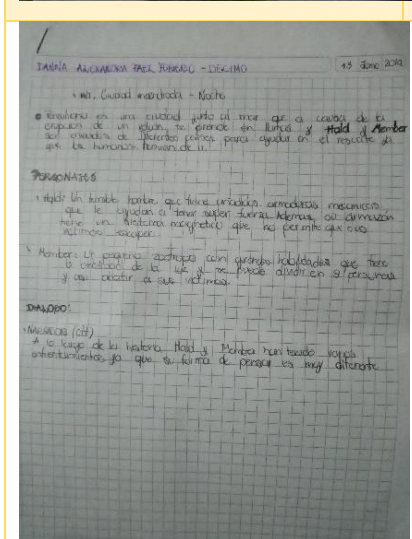 DANNA ALEXANDRA PAEZ - DECIMO
13 June
Ciudad - Noche
en una ciudad junto al mar que a causa de la
erupcion de un volcan, se prende en llamas y Hald y Member
son enviados de diferentes paises para ayudar en el rescate ya
que los humanos
PERSONAJES
Hald: Un hombre que tiene armaduras
que le ayudan a tener super fuerza. Ademas, su armazon
tiene un sistema magnetico que no permite que sus
escapen
Member: Un pequeño con grandes habilidades que tiene
la de la luz y se puede dividir en personas
y asi a sus victimas.
DIALOGO:
NARRADOR (Off)
A lo largo de la historia Hald y Member han tenido varios
enfrentamientos ya que su forma de pensar es muy diferente